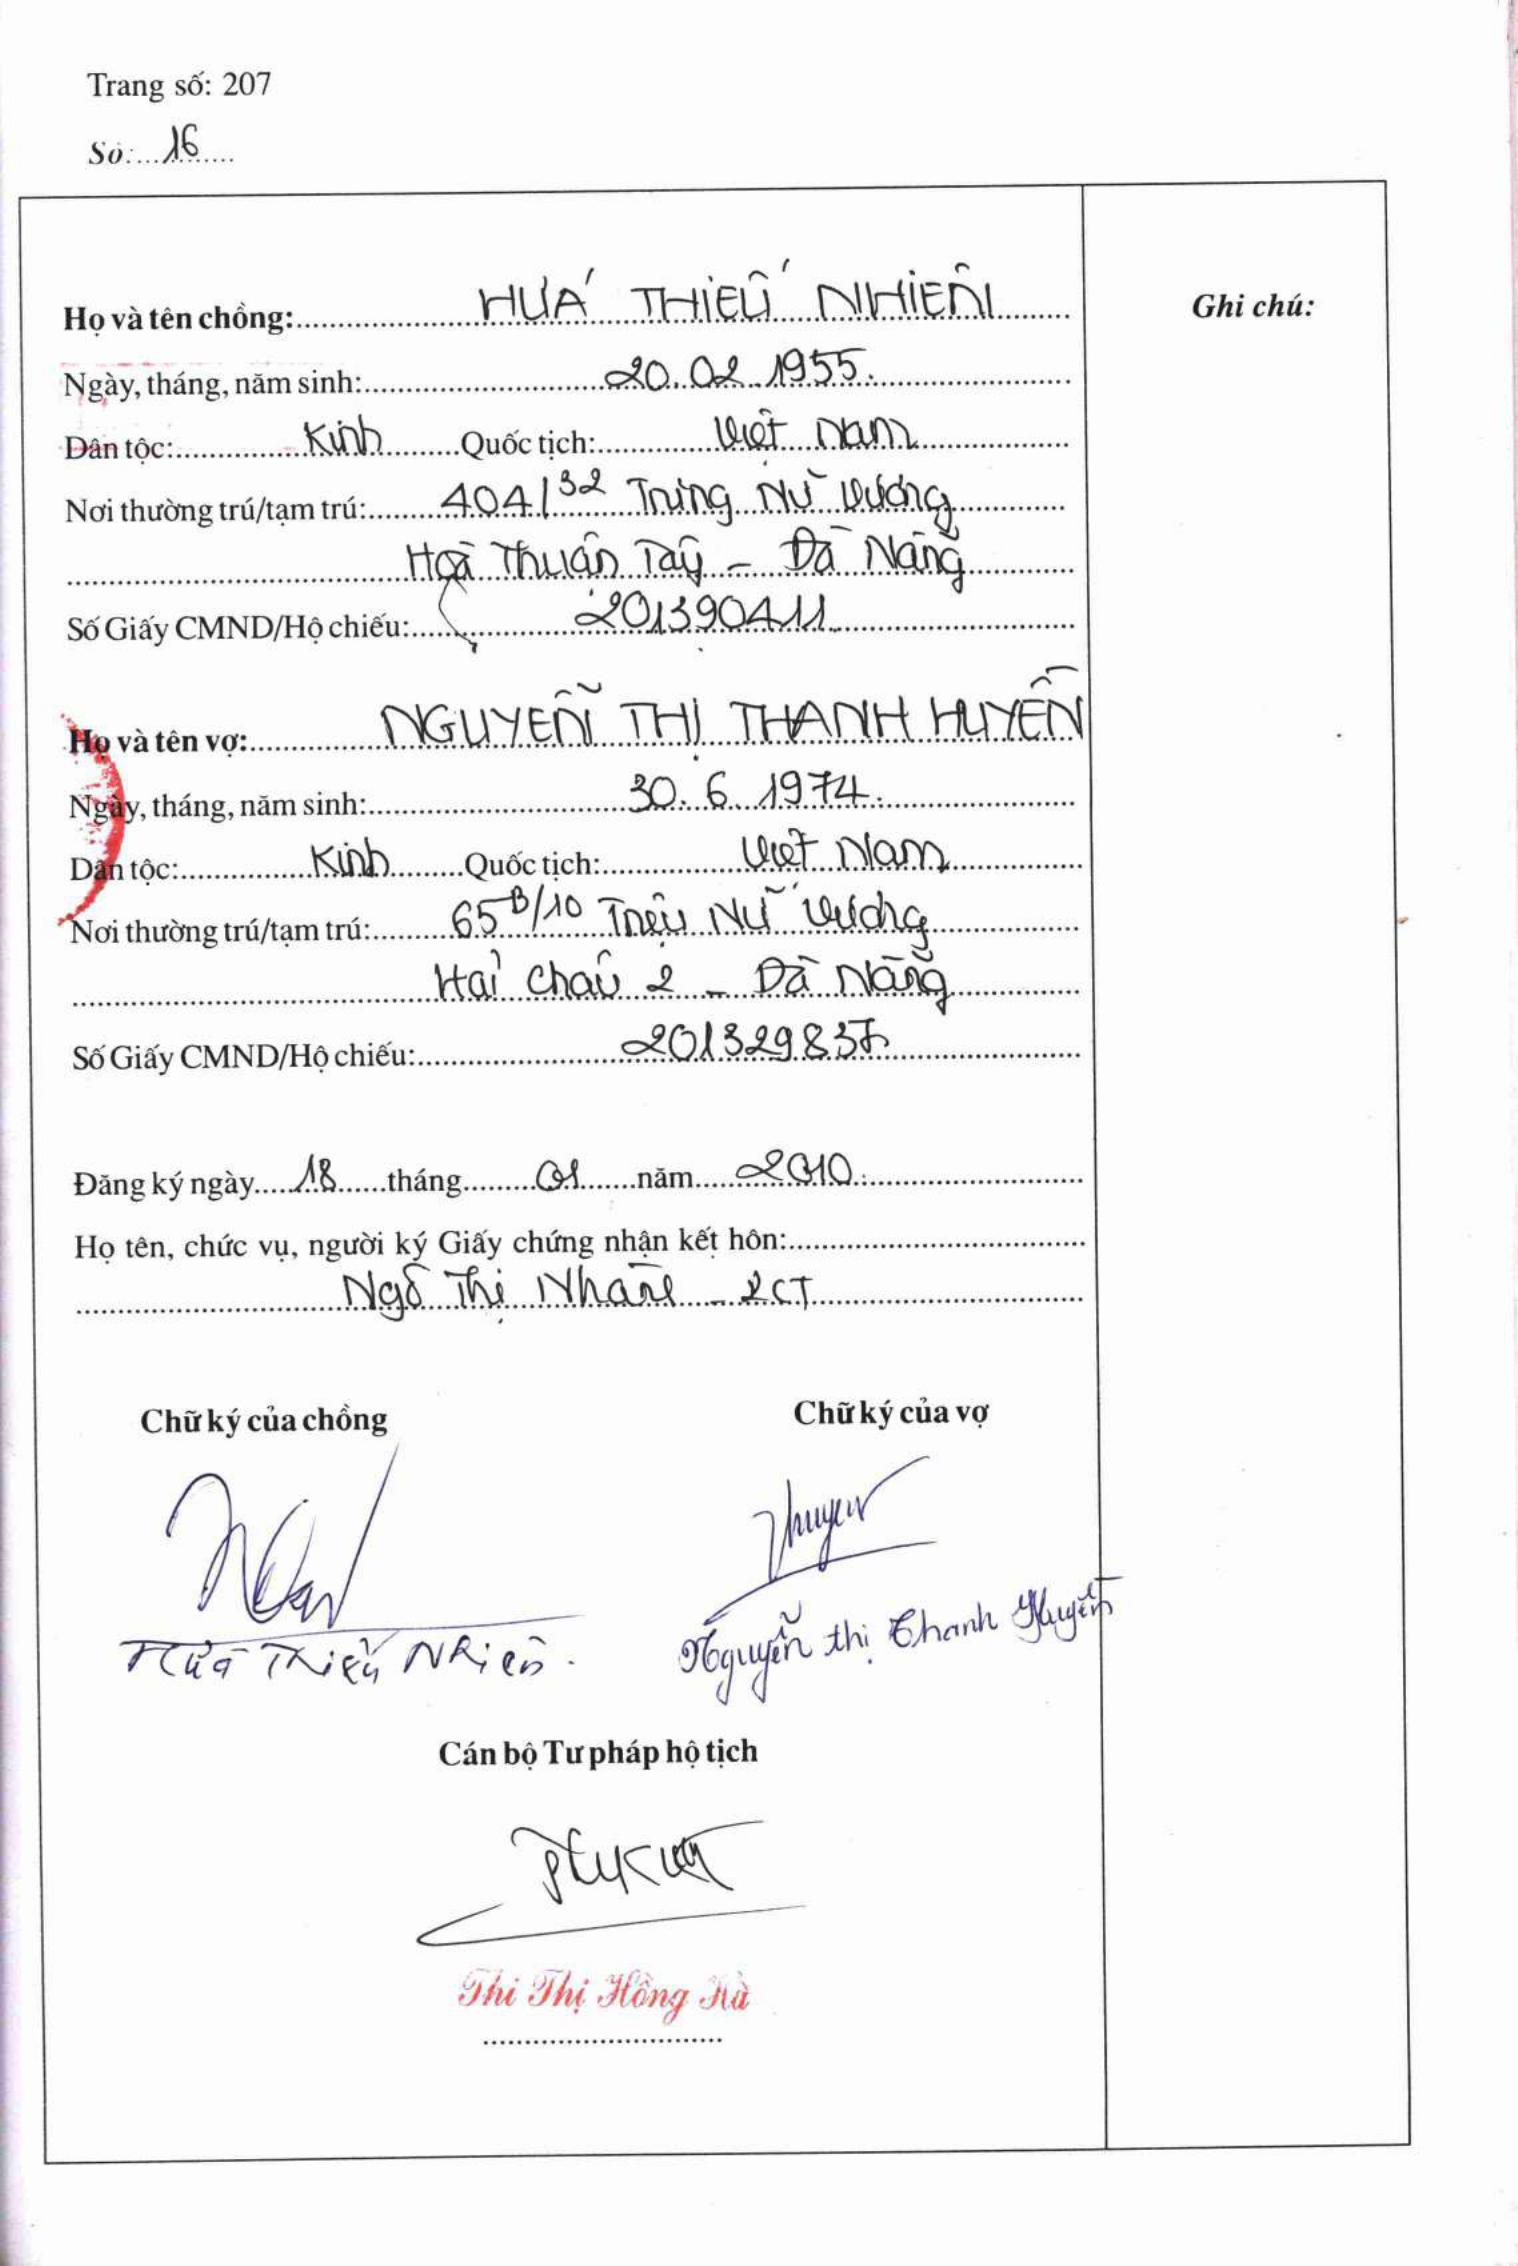 Trang số: 207
Số:....16......
Họ và tên chồng: HỨA THIẾU NHIÊN
Ghi chú:
Ngày, tháng, năm sinh: 20.02.1955.
Dân tộc: Kinh Quốc tịch: Việt Nam
Nơi thường trú/tạm trú: 404/32 Trưng Nữ Vương
Hoà Thuận Tây - Đà Nẵng
Số Giấy CMND/Hộ chiếu: 201390411
Họ và tên vợ: NGUYỄN THỊ THANH HUYỀN
Ngày, tháng, năm sinh: 30.6.1974.
Dân tộc: Kinh Quốc tịch: Việt Nam
Nơi thường trú/tạm trú: 65B/10 Triệu Nữ Vương
Hải Châu 2 - Đà Nẵng
Số Giấy CMND/Hộ chiếu: 201329837
Đăng ký ngày 18 tháng 01 năm 2010.
Họ tên, chức vụ, người ký Giấy chứng nhận kết hôn:
Ngô Thị - PCT
Chữ ký của chồng Chữ ký của vợ
Hứa Thiếu Nhiên. Nguyễn thị Thanh Huyền
Cán bộ Tư pháp hộ tịch
Thi Thị Hồng Hà